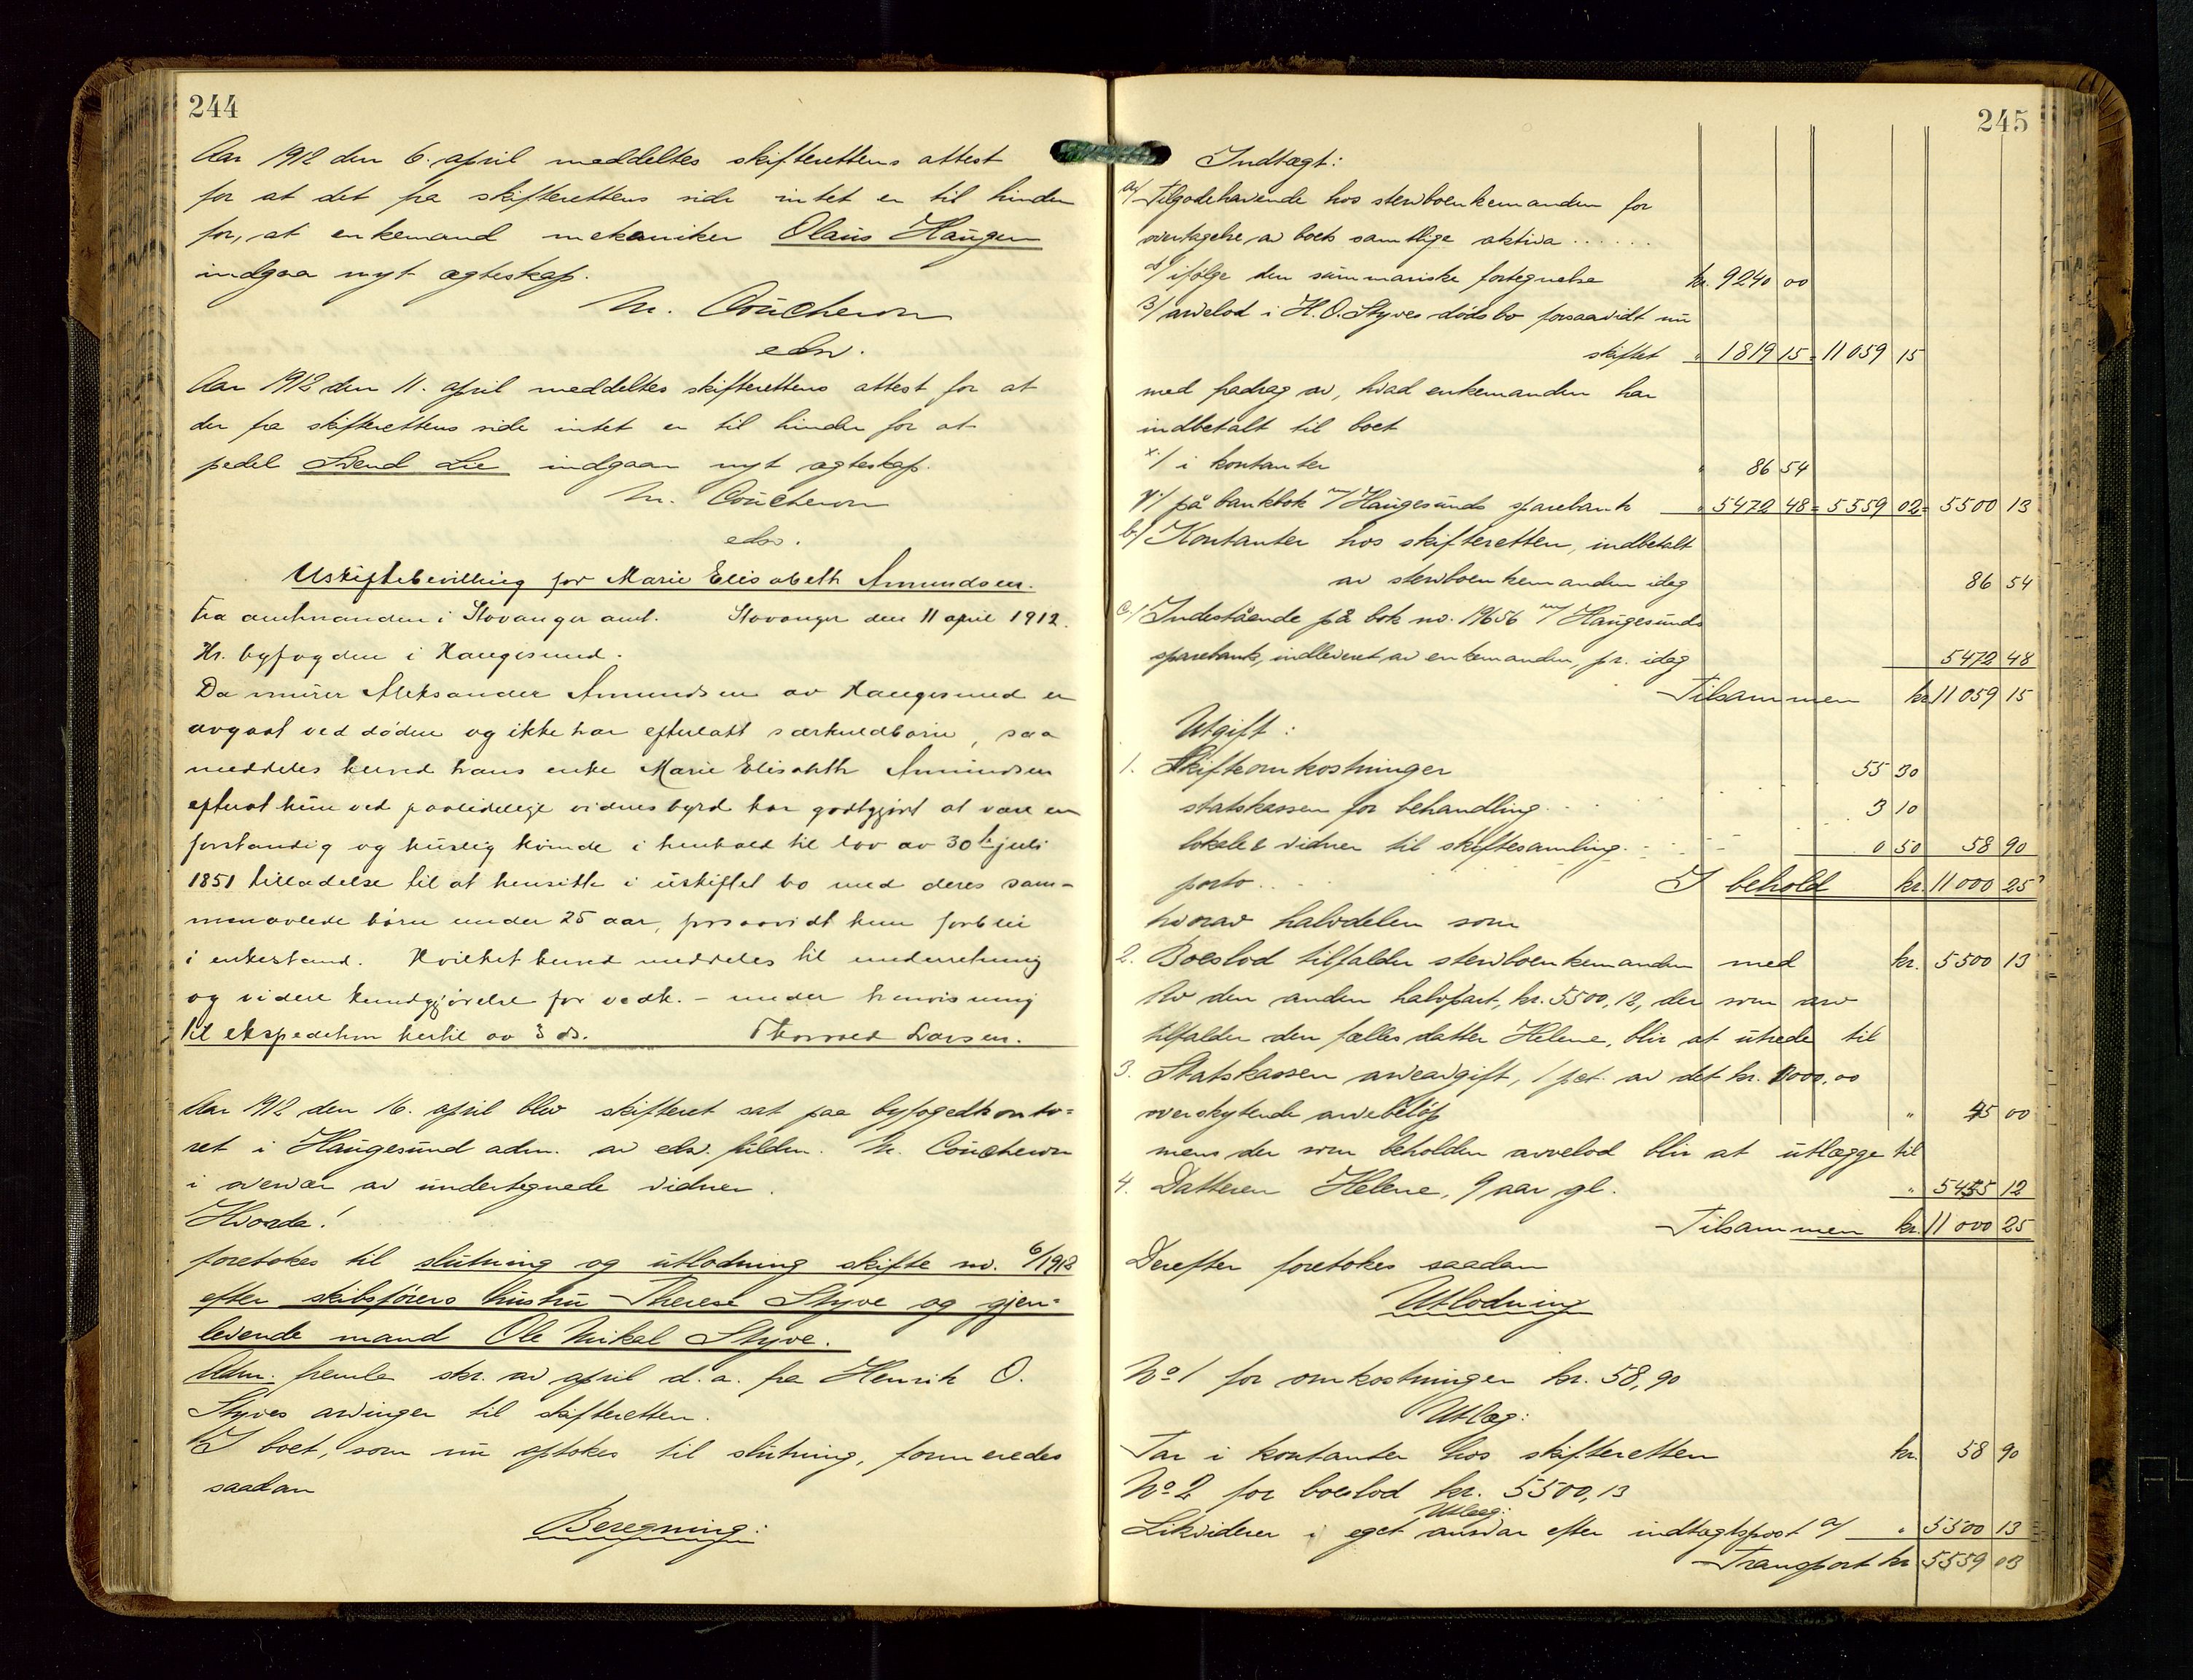 244
Aar 1912 den 6. april meddeltes skifterettens attest
for at det fra skifterettens side intet er til hinder
for, at enkemand mekaniker Olaus Haugen
indgaa nyt egteskap.
M. Coucheron
edsv.
Aar 1912 den 11. april meddeltes skifterettens attest for at
der fra skifterettens side intet er til hinder for at
pedel Svend Lie indgaar nyt egteskap.
M. Coucheron
edsv.
Uskiftebevilling for Marie Elisabeth Amundsen.
Fra amtmanden i Stavanger amt. Stavanger den 11 april 1912.
Hr. byfogden i Haugesund.
Da murer Aleksander Amundsen av Haugesund er
avgaat ved døden og ikke har efterlatt særkuldbarn, saa
meddeles herved hans enke Marie Elisabeth Amundsen
efterat hun ved paalidelige vidnesbyrd har godtgjort at være en
forstandig og huslig kvinde i henhold til lov av 30te juli
1851 tilladelse til at hensitte i uskiftet bo med deres sam-
menavlede børn under 25 aar, forsaavidt hun forblir
i enkestand. Hvilket herved meddeles til underretning
og videre kundgjørelse for vedk. - under henvisning
til ekspedition hertil av 3 ds. Thorvald Larsen.
Aar 1912 den 16. april blev skifteret sat paa byfogedkonto=
ret i Haugesund adm. av edsv. fuldm. M. Coucheron
i overvær av undertegnede vidner.
Hvorda!
foretokes til slutning og utlodning skifte no. 6/1912
efter skibsførers hustru Therese Styve og gjen-
levende mand Ole Mikal Styve.
Adm. fremla skr. av april d. a. fra Henrik O.
Styves arvinger til skifteretten.
I boet, som nu optokes til slutning, formeredes
saadan
Beregning:
245
Indtægt:
a/ Tilgodehavende hos stervboenkemanden for
overtagelse av boets samtlige aktiva ......
α/ ifølge den summariske fortegnelse kr. 9240 00
β/ arvelod i H. O. Styves dødsbo forsaavidt nu
skiftet " 1819 15 = 11059 15
med fradrag av, hvad enkemanden har
indbetalt til boet
x/ i kontanter " 86 54
y/ på bankbok m/ Haugesunds sparebank " 5472 48 = 5559 02 = 5500 13
b/ Kontanter hos skifteretten, indbetalt
av stervboenkemanden idag 86 54
c/ Indestående på bok no. 19656 m/ Haugesunds
sparebank, indleveret av enkemanden, pr. idag 5472 48
Tilsammen kr. 11059 15
Utgift:
1. Skifteomkostninger 55 30
statskassen for behandling 3 10
lokale & vidner til skiftesamling 0 50 58 90
porto ..
I behold kr. 11000 25
hvorav halvdelen som
2. Boeslod tilfalder stervboenkemanden med kr. 5500 13
Av den anden halvpart, kr. 5500,12, der som arv
tilfalder den fælles datter Helene, blir at utrede til
3. Statskassen arveavgift, 1 pct. av det kr. 1000,00
overskytende arvebeløp " 45 00
mens der som beholden arvelod blir at utlægge til
4. Datteren Helene, 9 aar gl. " 5455 12
Tilsammen kr. 11000 25
Derefter foretokes saadan
Utlodning
No 1 for omkostninger kr. 58,90
Utlæg:
Tar i kontanter hos skifteretten kr. 58 90
No 2 for boeslod kr. 5500,13
Utlæg:
Likviderer i eget ansvar efter indtægtspost a/ " 5500 13
Transport kr 5559 03